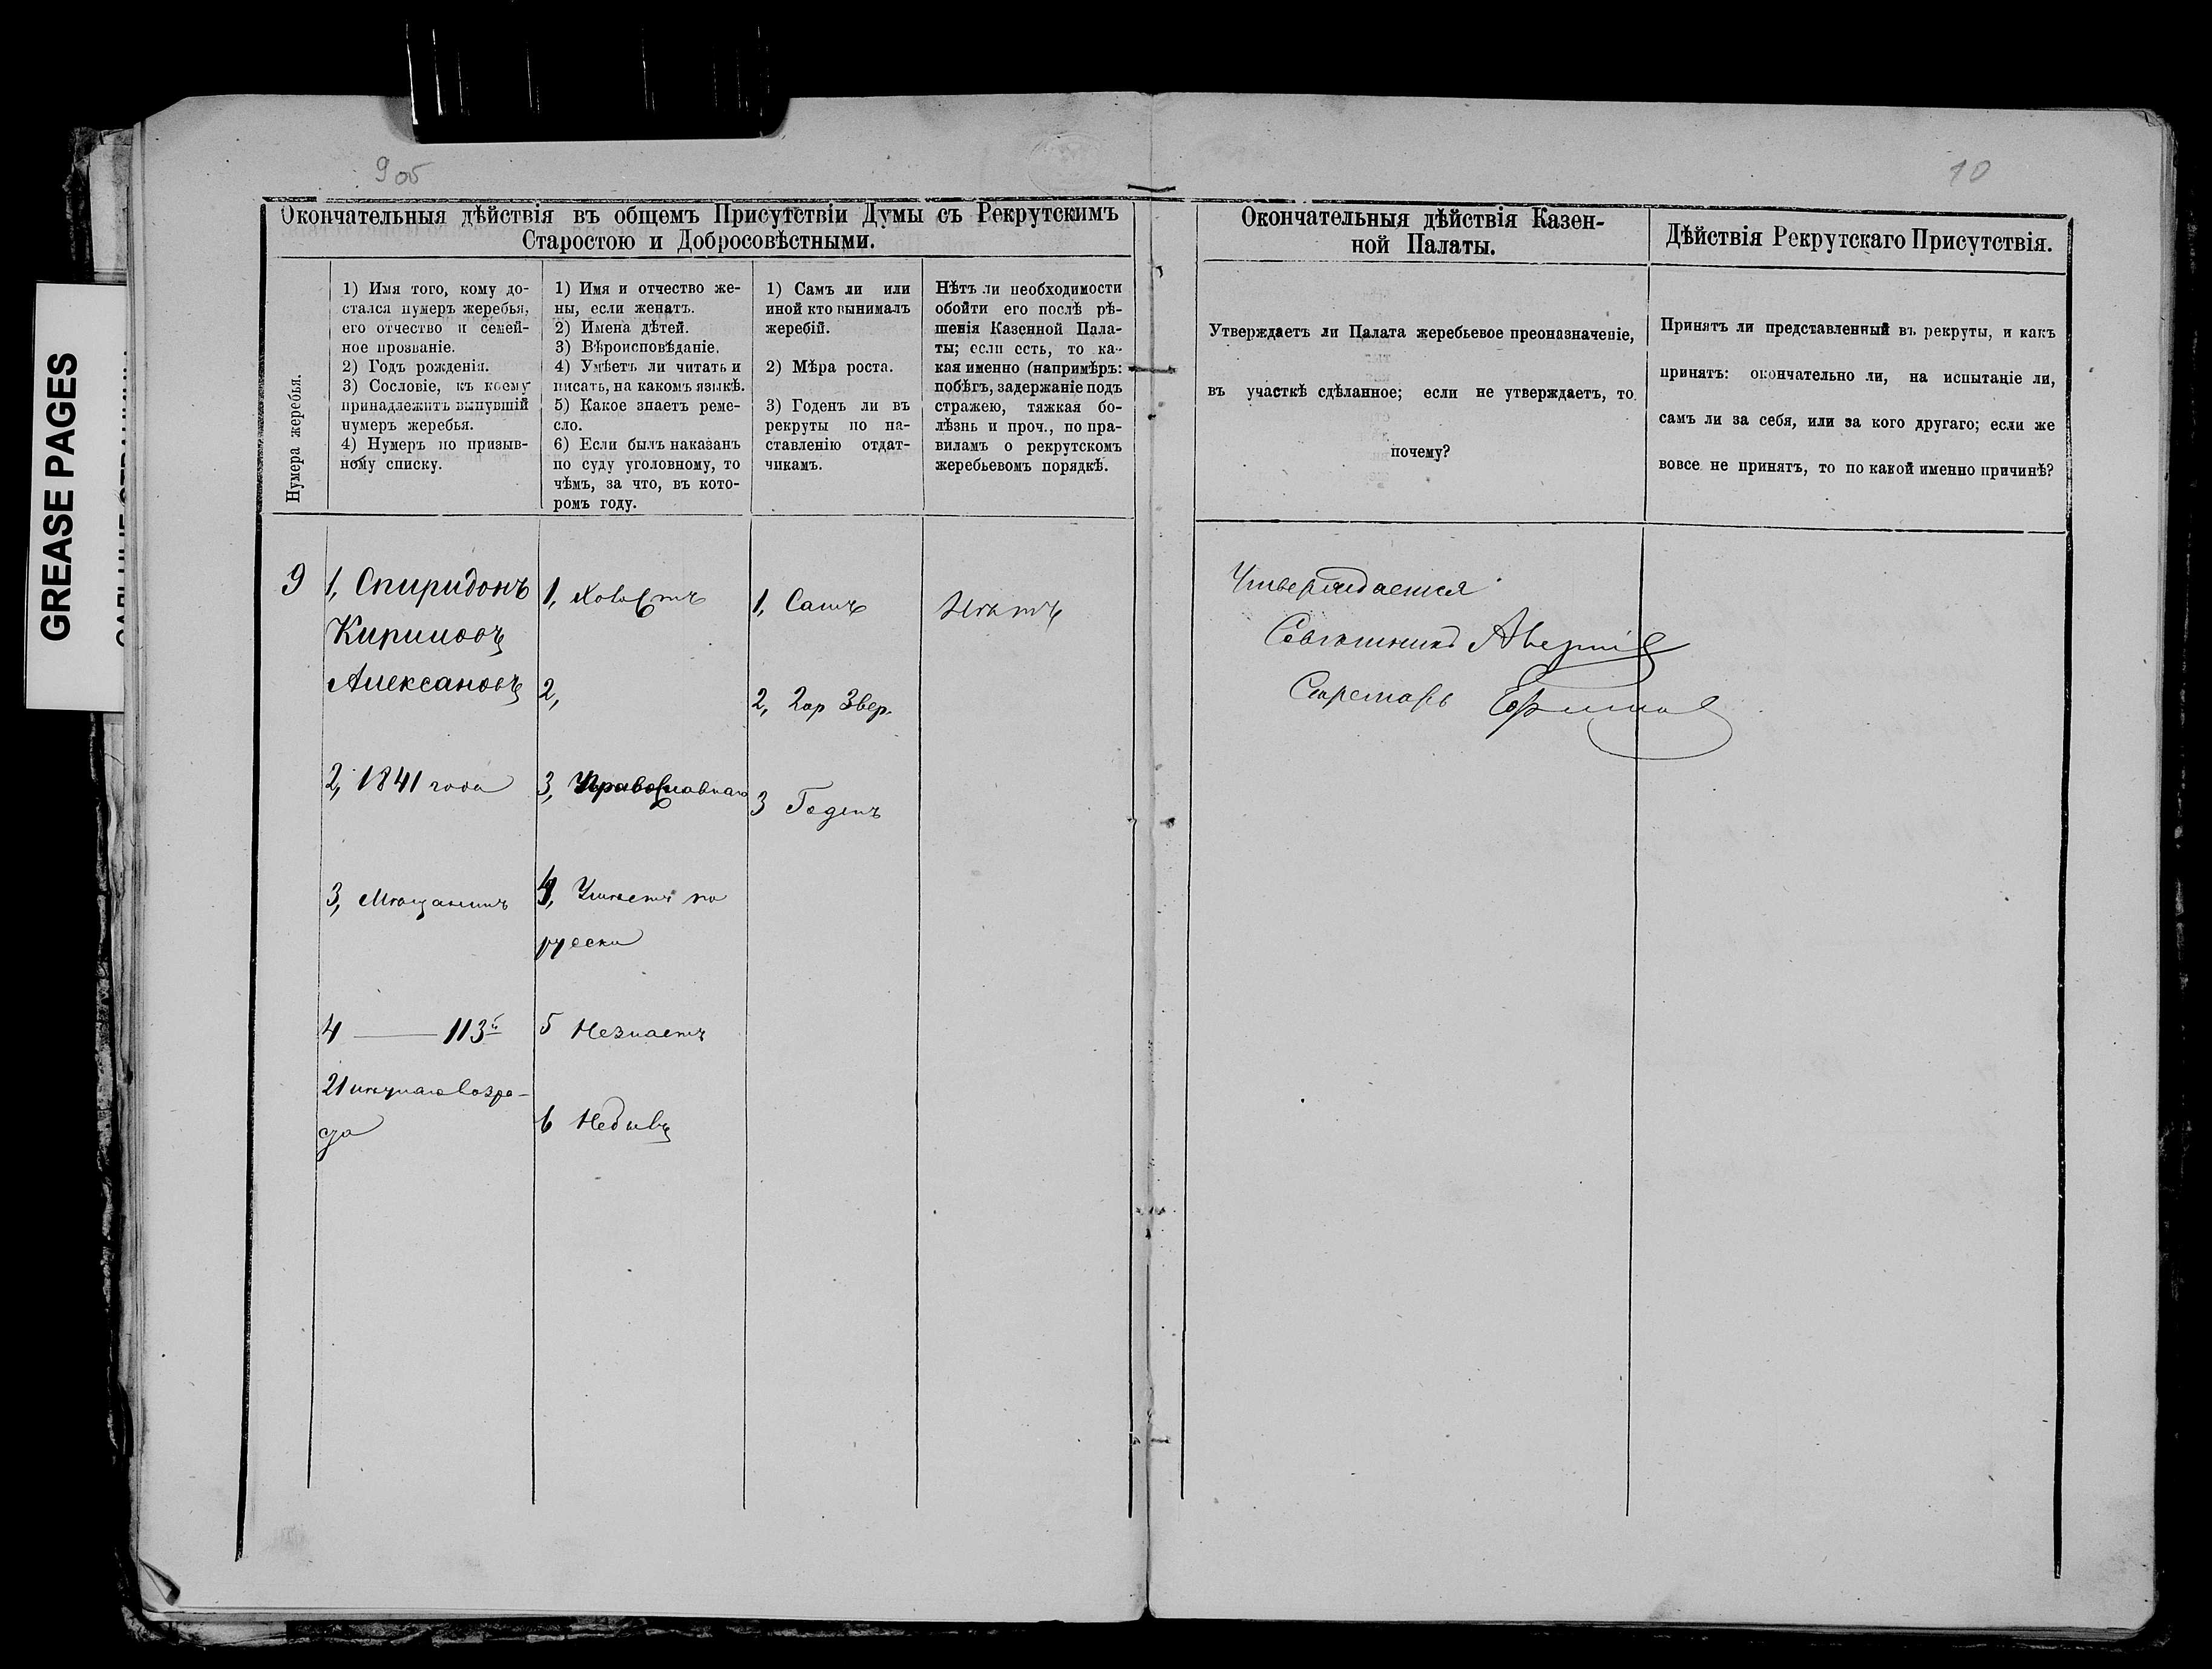 GREASE PAGES
9 об
10
Окончательныя дѣйствія въ общемъ Присутствіи Думы съ Рекрутскимъ
Старостою и Добросовѣстными.
Нумера жеребья.
1) Имя того, кому до-
стался нумеръ жеребья,
его отчество и семей-
ное прозваніе.
2) Годъ рожденія.
3) Сословіе, къ коему
принадлежитъ вынувшій
нумеръ жеребья.
4) Нумеръ по призыв-
ному списку.
1) Имя и отчество же-
ны, если женатъ.
2) Имена дѣтей.
3) Вѣроисповѣданіе.
4) Умѣетъ ли читать и
писать, на какомъ языкѣ.
5) Какое знаетъ реме-
сло.
6) Если былъ наказанъ
по суду уголовному, то
чѣмъ, за что, въ кото-
ромъ году.
1) Самъ ли или
иной кто вынималъ
жеребій.
2) Мѣра роста.
3) Годенъ ли въ
рекруты по на-
ставленію отдат-
чикамъ.
Нѣтъ ли необходимости
обойти его послѣ рѣ-
шенія Казенной Пала-
ты; если есть, то ка-
кая именно (напримѣръ:
побѣгъ, задержаніе подъ
стражею, тяжкая бо-
лѣзнь и проч., по пра-
виламъ о рекрутскомъ
жеребьевомъ порядкѣ.
9
1, Спиридонъ
Кириловъ
Алексановъ
2, 1841 года
3, Мѣщанинъ
4 — 113й
21 лѣтняго возра-
ста
1, Холостъ
2,
3, Православнаго
4, Умѣетъ по
русски
5 Незнаетъ
6 Небылъ
1, Самъ
2, 2 ар 3 вер.
3 Годенъ
Нѣтъ
Окончательныя дѣйствія Казен-
ной Палаты.
Утверждаетъ ли Палата жеребьевое преоназначеніе,
въ участкѣ сдѣланное; если не утверждаетъ, то
почему?
Утверждается
Совѣтникъ
Секретарь Ефимов
Дѣйствія Рекрутскаго Присутствія.
Принятъ ли представленный въ рекруты, и какъ
принятъ: окончательно ли, на испытаніе ли,
самъ ли за себя, или за кого другаго; если же
вовсе не принятъ, то по какой именно причинѣ?